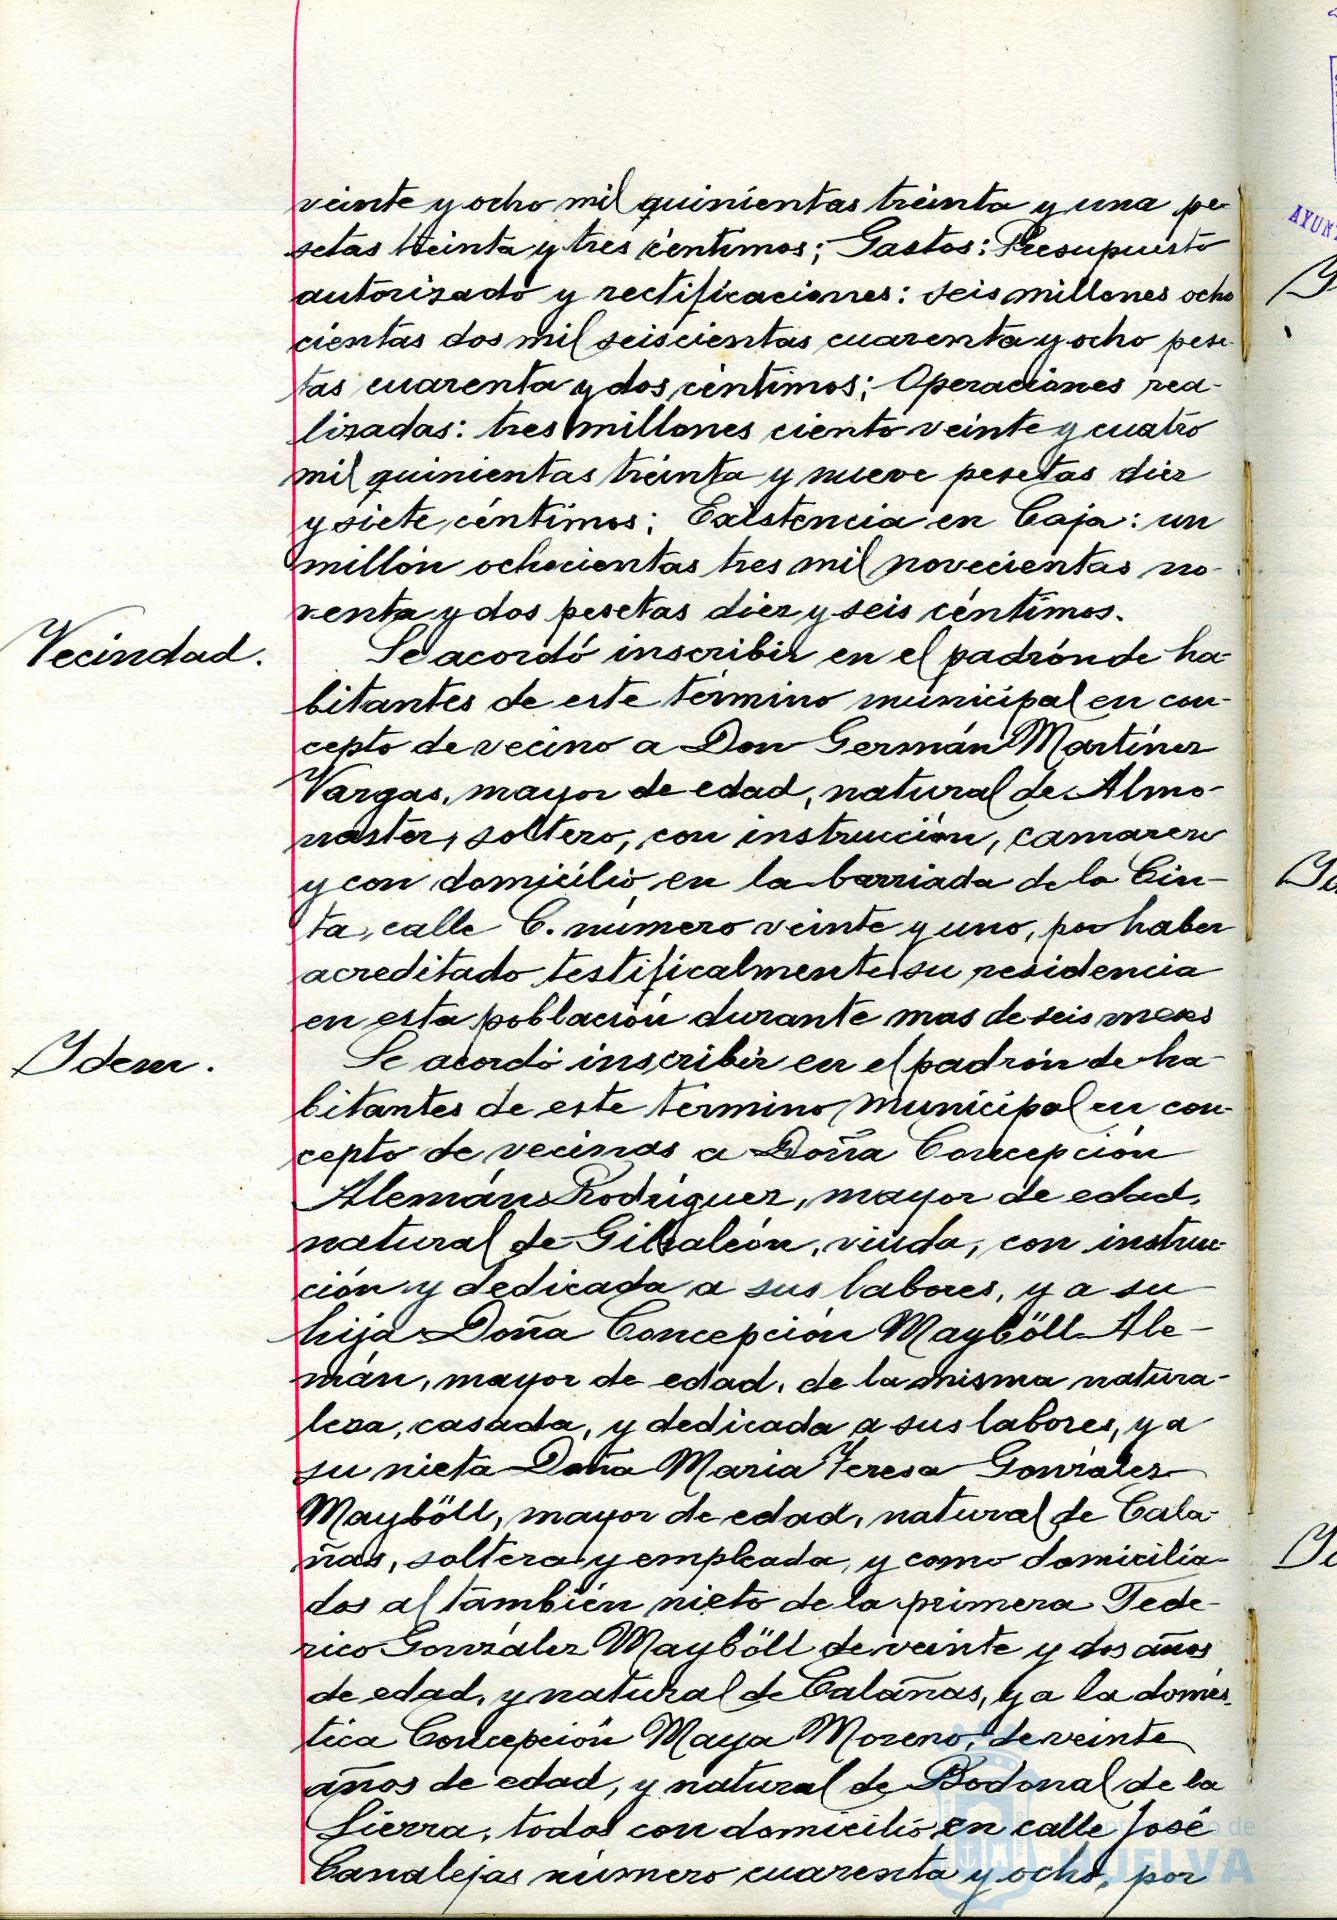 veinte y ocho mil quinientas treinta y una pe-
setas treinta y tres céntimos; Gastos: Presupuesto
autorizado y rectificaciones: seis millones ocho
cientas dos mil seiscientas cuarenta y ocho pese-
tas cuarenta y dos céntimos; Operaciones rea-
lizadas: tres millones ciento veinte y cuatro
mil quinientas treinta y nueve pesetas diez
y siete céntimos; Existencia en Caja: un
millón ochocientas tres mil novecientas no-
venta y dos pesetas diez y seis céntimos.
Vecindad.
Se acordó inscribir en el padrón de ha-
bitantes de este término municipal en con-
cepto de vecino a Don Germán Martínez
Vargas, mayor de edad, natural de Almo-
naster, soltero, con instrucción, camarero
y con domicilio en la barriada de la Cin-
ta, calle C. número veinte y uno, por haber
acreditado testificalmente su residencia
en esta población durante mas de seis meses
Idem.
Se acordó inscribir en el padrón de ha-
bitantes de este término municipal en con-
cepto de vecinas a Doña Concepción
Alemán Rodríguez, mayor de edad,
natural de Gibraleón, viuda, con instruc-
ción y dedicada a sus labores, y a su
hija Doña Concepción Mayböll Ale-
mán, mayor de edad, de la misma natura-
leza, casada, y dedicada a sus labores, y a
su nieta Doña Maria Teresa González
Mayböll, mayor de edad, natural de Cala-
ñas, soltera y empleada, y como domicilia-
dos al también nieto de la primera Fede-
rico González Mayböll de veinte y dos años
de edad, y natural de Calañas, y a la domés-
tica Concepción Maya Moreno, de veinte
años de edad, y natural de Bodonal de la
Sierra, todos con domicilio en calle José
Canalejas número cuarenta y ocho, por
HUELVA